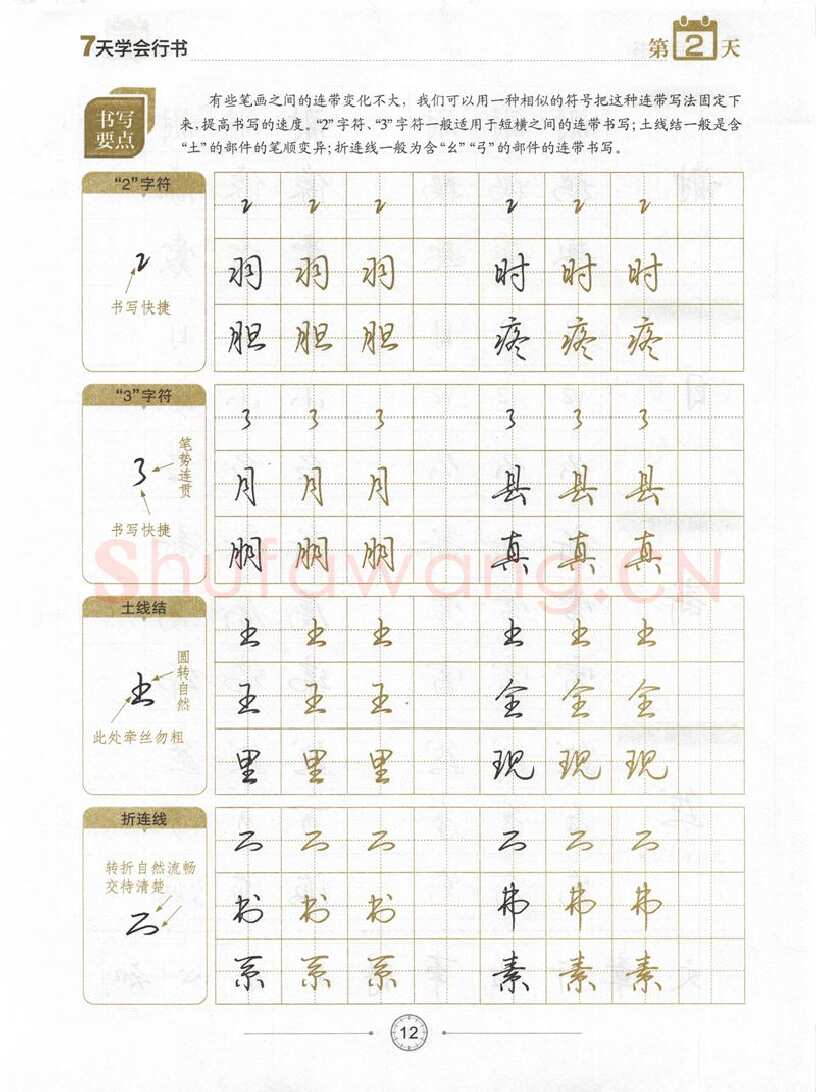 7天学会行书
第2天
书写要点
有些笔画之间的连带变化不大，我们可以用一种相似的符号把这种连带写法固定下
来，提高书写的速度。“2”字符、“3”字符一般适用于短横之间的连带书写；土线结一般是含
“土”的部件的笔顺变异；折连线一般为含“幺”“弓”的部件的连带书写。
“2”字符
2
书写快捷
2 2 2 2 2 2
羽 羽 羽 时 时 时
胆 胆 胆 疼 疼 疼
“3”字符
笔势连贯
3
书写快捷
3 3 3 3 3 3
月 月 月 县 县 县
朋 朋 朋 真 真 真
Shufawang.CN
土线结
圆转自然
土
此处牵丝勿粗
土 土 土 土 土 土
王 王 王 全 全 全
里 里 里 现 现 现
折连线
转折自然流畅
交待清楚
书 书 书 弗 弗 弗
系 系 系 素 素 素
12